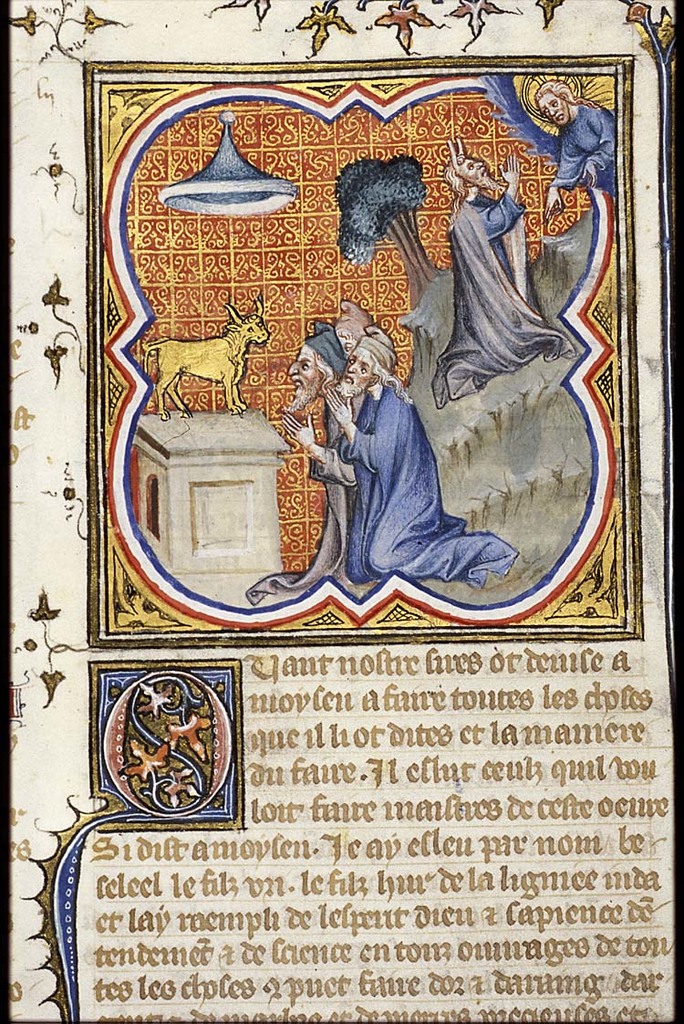 Quant nostre sires ot deuise a
moysen a faire toutes les choses
que il li ot dites et la maniere
du faire. Il eslut ceulz quil vou
loit faire maistres de ceste oeure
Si dist a moysen. Je ay esleu par nom be
seleel le filz vri. le filz hur de la lignee iuda
et lay raempli de lesperit dieu & sapience dē
tendemēt & de science en touz ouurages de tou
tes les choses q̄ puet faire dor & dargng. dar